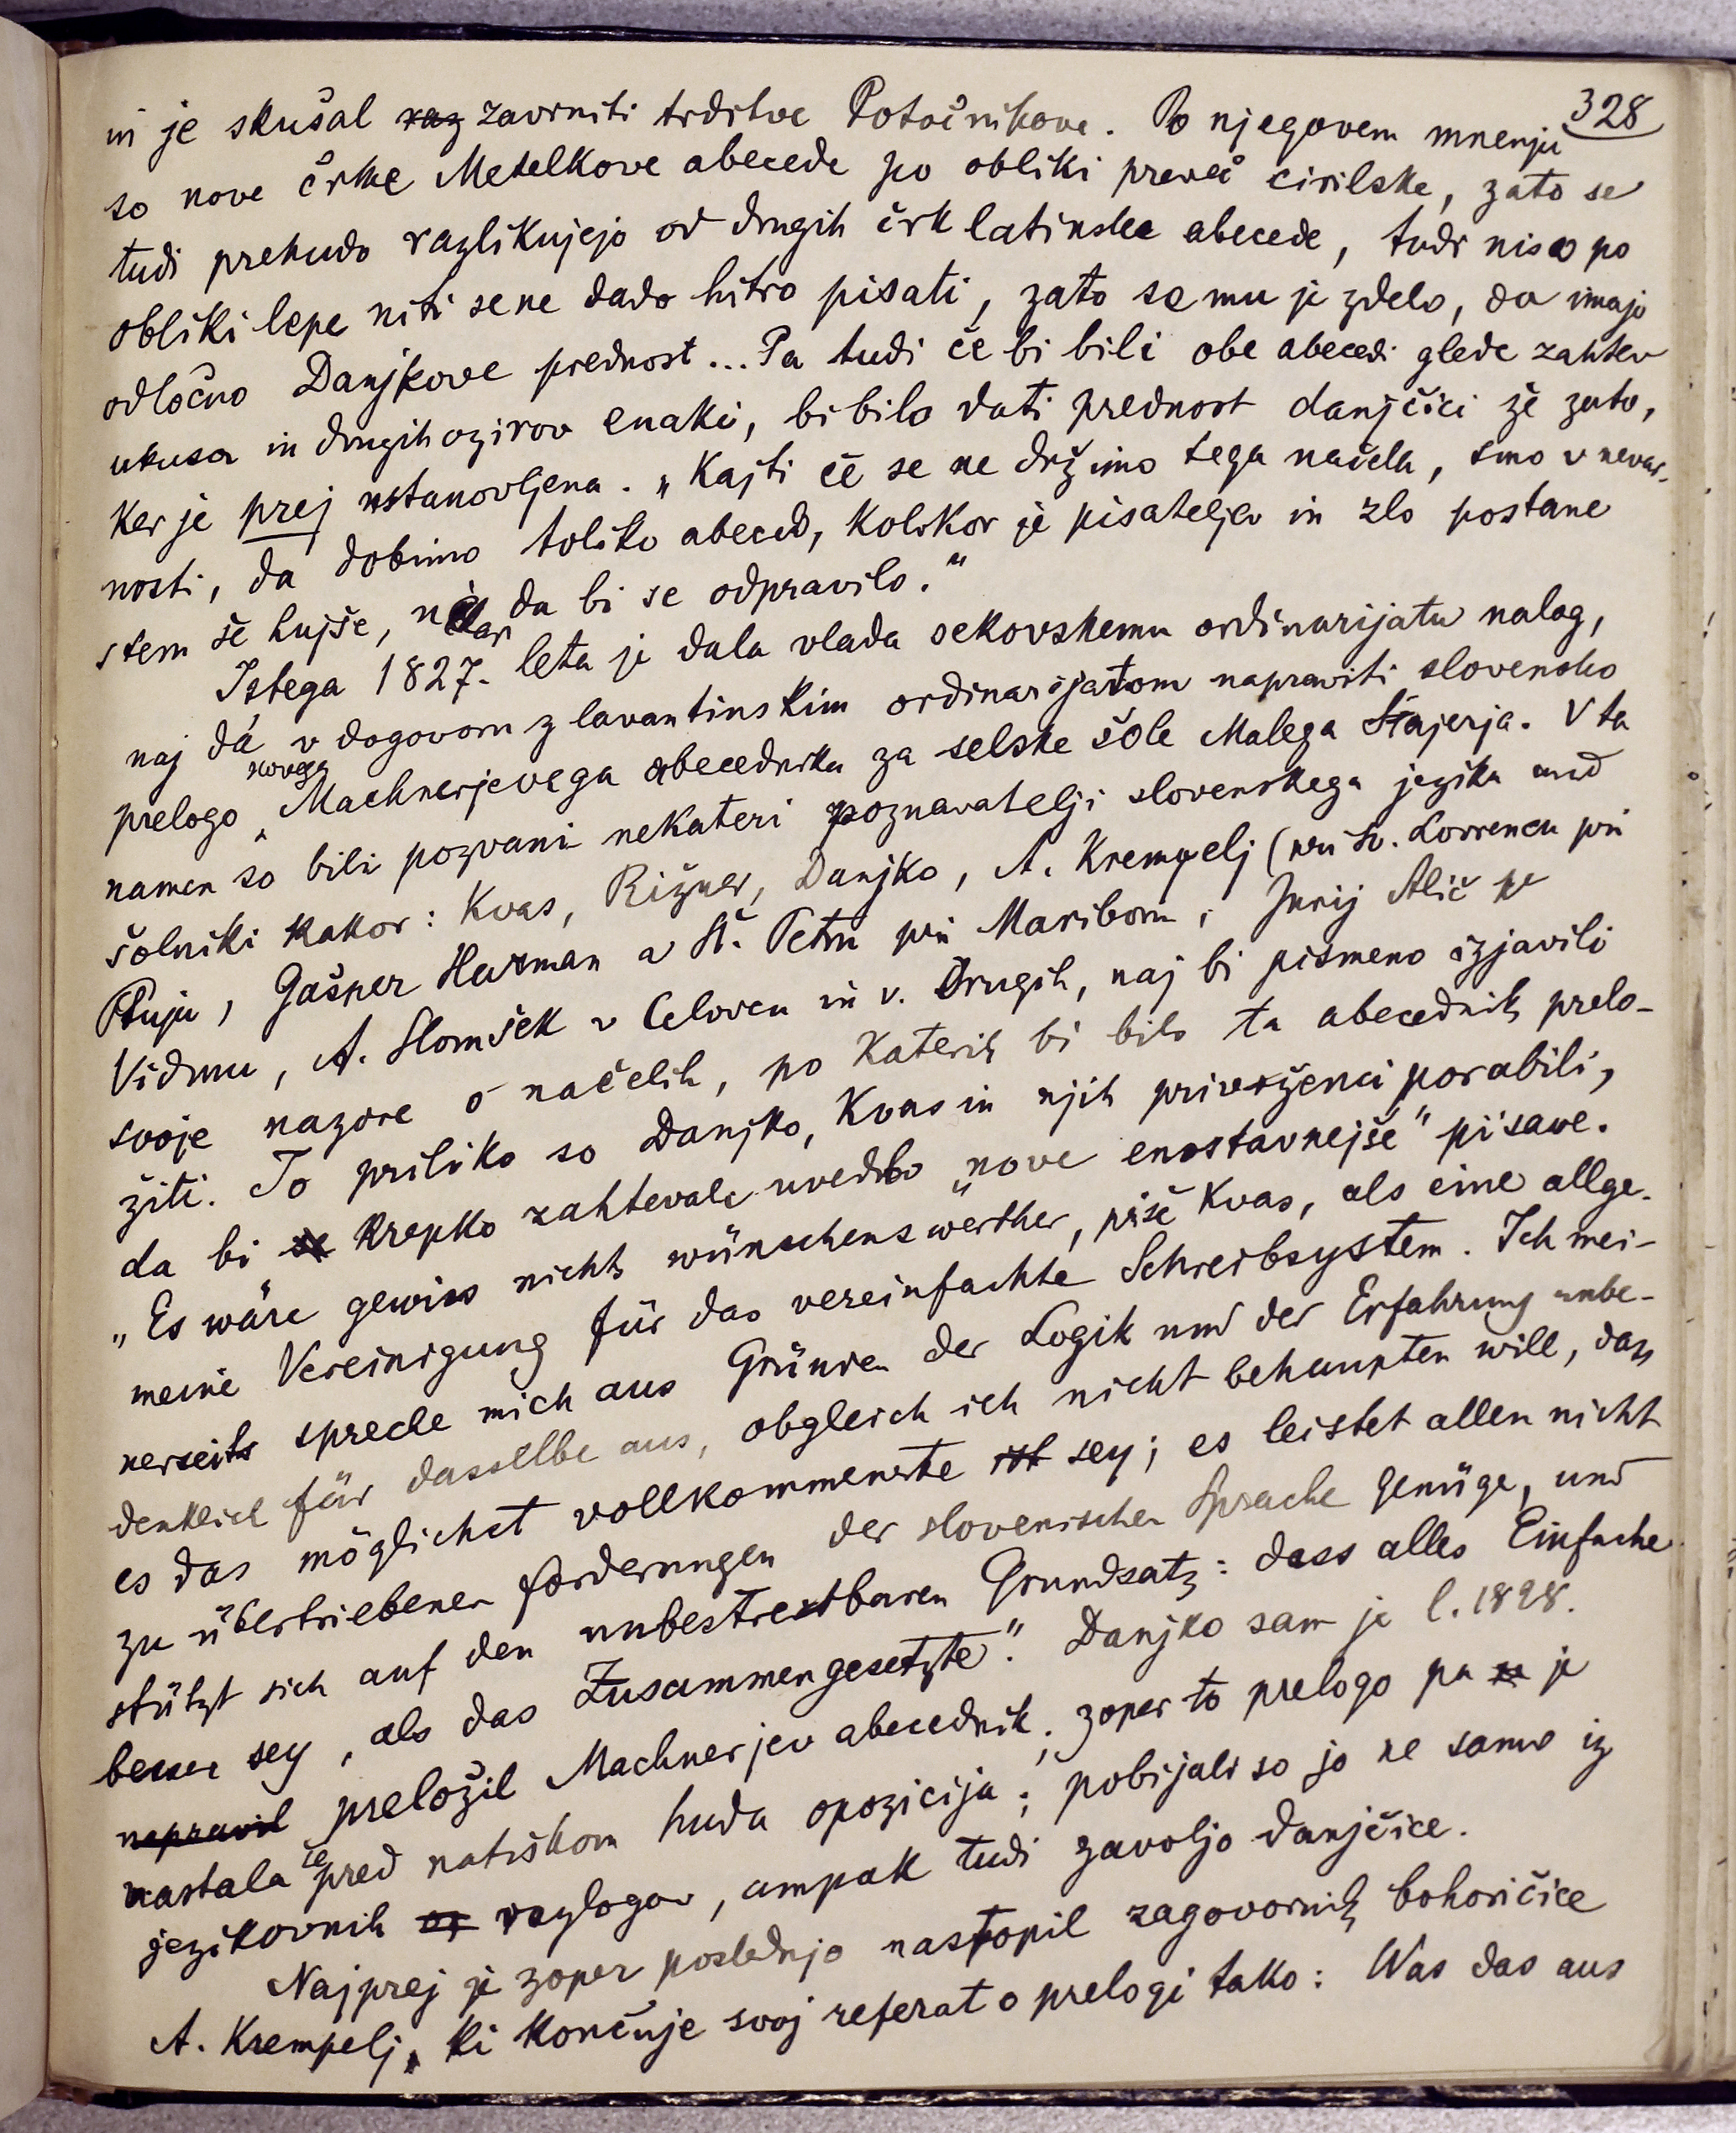 328
in je skušal raz zavrniti trditve Potočnikove. Po njegovem mnenju
so nove črke Metelkove abecede po obliki preveč cirilske, zato se
tudi prehudo razlikujejo od drugih črk latinske abecede, tudi niso po
obliki lepe niti se ne dado hitro pisati, zato se mu je zdelo, da imajo
odločno Danjkove prednost... Pa tudi če bi bili obe abecedi glede zahtev
ukusa in drugih ozirov enaki, bi bilo dati prednost danjčici že zato,
ker je prej ustanovljena. „Kajti če se ne držimo tega načela, smo v nevar-
nosti, da dobimo toliko abeced, kolikor je pisateljev in zlo postane
s tem še hujše, da bi se odpravilo."
Istega 1827. leta je dala vlada sekovskemu ordinarijatu nalog,
naj dá v dogovoru z lavantinskim ordinarijatom napraviti slovensko
prelogo novega Machnerjevega abecednika za selske šole Malega Štajerja. V ta
namen so bili pozvani nekateri poznavatelji slovenskega jezika med
šolniki kakor: Kvas, Rižner, Danjko, A. Krempelj (pri Sv. Lovrencu pri
Ptuju, Gašper Harman v Št. Petru pri Mariboru, Jurij Alič
Vidmu, A. Slomšek v Celovcu in v. drugih, naj bi pismeno izjavili
svoje nazore o načelih, po katerih bi bilo ta abecednik prelo-
žiti. To priliko so Danjko, Kvas in njih privrženci porabili,
da bi se krepko zahtevali uvedbo „nove enostavnejše" pisave.
„Es wäre gewiss nichts wünschenswerther, piše Kvas, als eine allge-
meine Vereinigung für das vereinfachte Schreibsystem. Ich mei-
nerseits spreche mich aus Gründen der Logik und der Erfahrung unbe-
denklich für dasselbe aus, obgleich ich nicht behaupten will, dass
es das möglichst vollkommenste ist sey; es leistet allen nicht
zu übertriebenen forderungen der slovenischen Sprache Genüge, und
stützt sich auf den unbestreitbaren Grundsatz: dass alles Einfache
besser sey, als das Zusammengesetzte." Danjko sam je l. 1828.
napravil preložil Machnerjev abecednik; zoper to prelogo pa je
nastala že pred natiskom huda opozicija; pobijali so jo ne samo iz
jezikovnih razlogov, ampak tudi zavoljo danjčice.
Najprej je zoper poslednjo nastopil zagovornik bohoričice
A. Krempelj, ki končuje svoj referat o prelogi tako: Was das aus